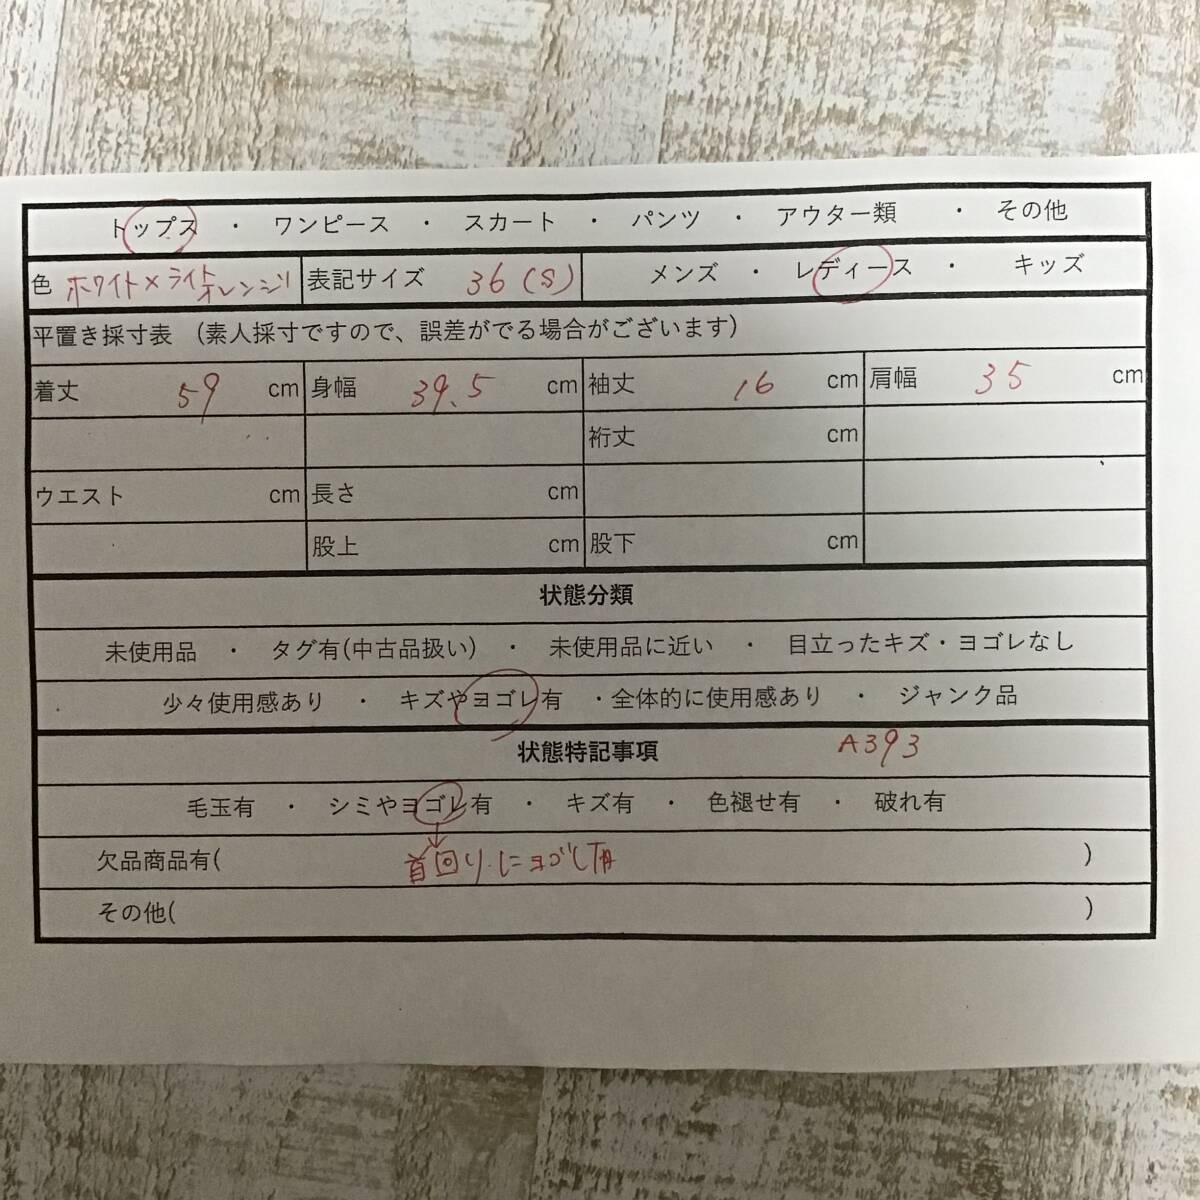 トップス ・ ワンピース ・ スカート ・ パンツ ・ アウター類 ・ その他
色 ホワイト×ライトオレンジ 表記サイズ 36(S) メンズ ・ レディース ・ キッズ
平置き採寸表 (素人採寸ですので、誤差がでる場合がございます)
着丈 59 cm 身幅 39.5 cm 袖丈 16 cm 肩幅 35 cm
裄丈 cm
ウエスト cm 長さ cm
股上 cm 股下 cm
状態分類
未使用品 ・ タグ有(中古品扱い) ・ 未使用品に近い ・ 目立ったキズ・ヨゴレなし
少々使用感あり ・ キズやヨゴレ有 ・全体的に使用感あり ・ ジャンク品
状態特記事項 A393
毛玉有 ・ シミやヨゴレ有 ・ キズ有 ・ 色褪せ有 ・ 破れ有
欠品商品有( 首回りにヨゴレ有 )
その他( )